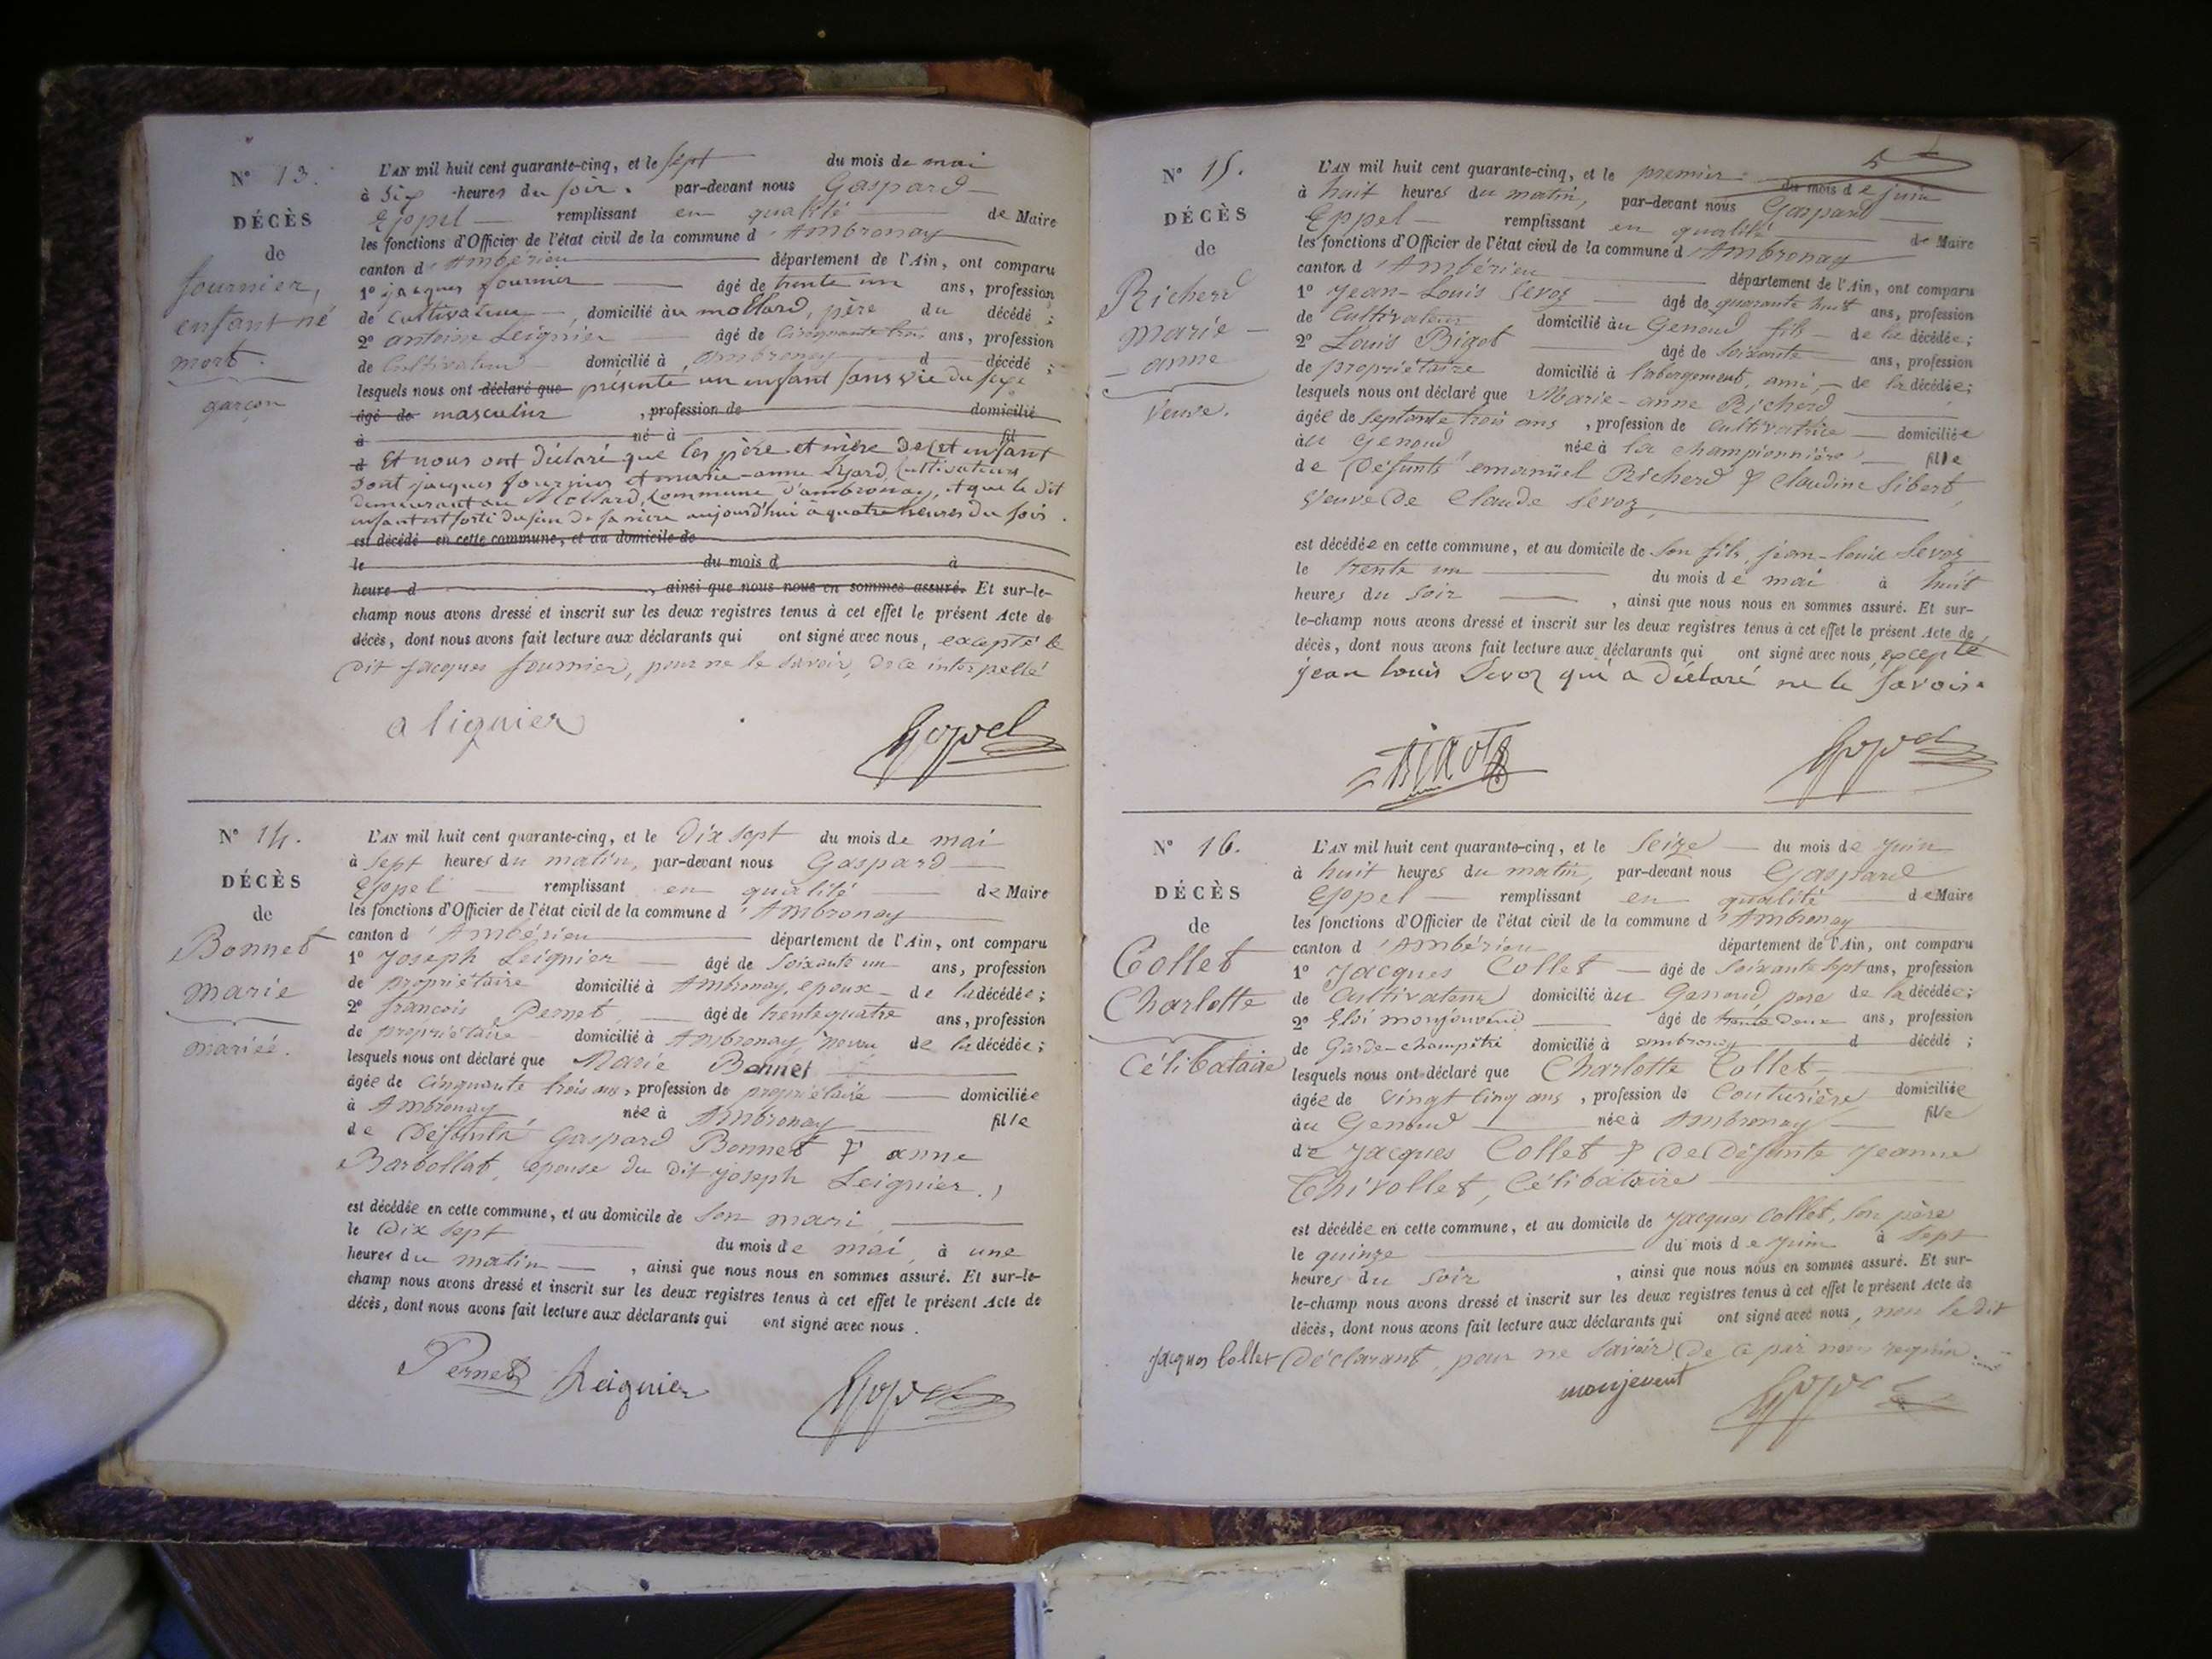 N° 13.
DÉCÈS
de
fournier,
enfant né
mort.
garçon
L'AN mil huit cent quarante-cinq, et le sept du mois de mai
à six heures du soir, par-devant nous Gaspard
Eppel remplissant en qualité de Maire
les fonctions d'Officier de l'état civil de la commune d'Ambronay
canton d'Ambérieu département de l'Ain, ont comparu
1° jacques fournier âgé de trente un ans, profession
de Cultivateur, domicilié au mollard, père du décédé;
2° antoine Leignier âgé de Cinquante trois ans, profession
de Cultivateur domicilié à Ambronay d décédé;
lesquels nous ont déclaré que présenté un enfant sans vie du sexe
âgé de masculin, profession de domicilié
à né à fil
d Et nous ont déclaré que les père et mère De Cet enfant
sont jacques fournier et marie-anne Cultivateurs
demeurant au Mollard, Commune d'ambronay, et que le dit
enfant est sorti du sein de sa mère aujourd'hui à quatre heures du soir.
est décédé en cette commune, et au domicile de
le du mois d à
heure d, ainsi que nous nous en sommes assuré. Et sur-le-
champ nous avons dressé et inscrit sur les deux registres tenus à cet effet le présent Acte de
décès, dont nous avons fait lecture aux déclarants qui ont signé avec nous, excepté le
Dit jacques fournier, pour ne le savoir, de ce interpellé
a liguier
Eppel
N° 14.
DÉCÈS
de
Bonnet
marie
mariée.
L'AN mil huit cent quarante-cinq, et le Dix sept du mois de mai
à sept heures du matin, par-devant nous Gaspard
Eppel remplissant en qualité de Maire
les fonctions d'Officier de l'état civil de la commune d'Ambronay
canton d'Ambérieu département de l'Ain, ont comparu
1° Joseph Leignier âgé de soixante un ans, profession
de propriétaire domicilié à Ambronay, epoux de la décédée;
2° françois Pernet, âgé de trente quatre ans, profession
de propriétaire domicilié à Ambronay, neveu de la décédée;
lesquels nous ont déclaré que Marie Bonnet
âgée de Cinquante trois ans, profession de propriétaire domiciliée
à Ambronay née à Ambronay fille
de Défunts Gaspard Bonnet & anne
Barbollat, epouse du Dit joseph Leignier.
est décédée en cette commune, et au domicile de Son mari
le Dix sept du mois de mai à une
heures du matin, ainsi que nous nous en sommes assuré. Et sur-le-
champ nous avons dressé et inscrit sur les deux registres tenus à cet effet le présent Acte de
décès, dont nous avons fait lecture aux déclarants qui ont signé avec nous.
Pernet Leignier
Eppel
5
N° 15.
DÉCÈS
de
Richerd
marie-
anne
Veuve.
L'AN mil huit cent quarante-cinq, et le premier du mois de juin
à huit heures du matin, par-devant nous Gaspard
Eppel remplissant en qualité de Maire
les fonctions d'Officier de l'état civil de la commune d'Ambronay
canton d'Ambérieu département de l'Ain, ont comparu
1° Jean-Louis Sevoz âgé de quarante huit ans, profession
de Cultivateur domicilié au Genoud fils de la décédée;
2° Louis Bigot âgé de soixante ans, profession
de propriétaire domicilié à l'abergement, ami, de la décédée;
lesquels nous ont déclaré que Marie-anne Richerd
âgée de septante trois ans, profession de Cultivatrice domiciliée
au Genoud née à la championnière fille
de Défunts emanüel Richerd & Claudine Sibert,
Veuve De Claude Sevoz,
est décédée en cette commune, et au domicile de son fils, jean-louis Sevoz
le trente un du mois de mai à huit
heures du soir, ainsi que nous nous en sommes assuré. Et sur-
le-champ nous avons dressé et inscrit sur les deux registres tenus à cet effet le présent Acte de
décès, dont nous avons fait lecture aux déclarants qui ont signé avec nous, excepté
jean louis Sevoz qui a Déclaré ne le savoir.
Bigot
Eppel
N° 16.
DÉCÈS
de
Collet
Charlotte
Célibataire
L'AN mil huit cent quarante-cinq, et le Seize du mois de juin
à huit heures du matin, par-devant nous Gaspard
Eppel remplissant en qualité de Maire
les fonctions d'Officier de l'état civil de la commune d'Ambronay
canton d'Ambérieu département de l'Ain, ont comparu
1° Jacques Collet âgé de soixante sept ans, profession
de Cultivateur domicilié au Genoud, père de la décédée;
2° Eloi monjouvend âgé de trente Deux ans, profession
de Garde-champêtre domicilié à ambronay d décédé;
lesquels nous ont déclaré que Charlotte Collet,
âgée de Vingt Cinq ans, profession de Couturière domiciliée
au Genoud née à Ambronay fille
de Jacques Collet & De Défunte Jeanne
Chivollet, Célibataire
est décédée en cette commune, et au domicile de Jacques Collet, son père
le quinze du mois de juin à sept
heures du soir, ainsi que nous nous en sommes assuré. Et sur-
le-champ nous avons dressé et inscrit sur les deux registres tenus à cet effet le présent Acte de
décès, dont nous avons fait lecture aux déclarants qui ont signé avec nous, non le dit
Jacques Collet Déclarant, pour ne savoir De ce par nous requis.
monjevent
Eppel